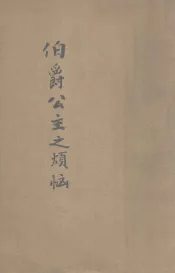 伯爵公主之煩惱